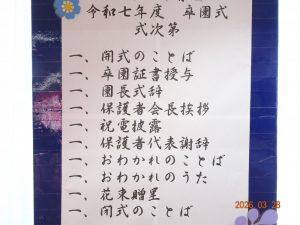 令和七年度　卒園式
式次第
一、開式のことば
一、卒園証書授与
一、園長式辞
一、保護者会長挨拶
一、祝電披露
一、保護者代表謝辞
一、おわかれのことば
一、おわかれのうた
一、花束贈呈
一、閉式のことば
2026. 03. 28